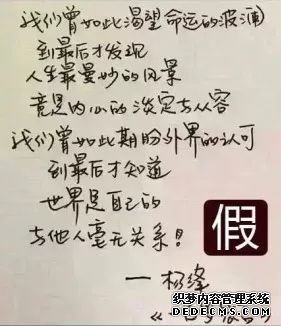 我们曾如此渴望命运的波澜
到最后才发现
人生最曼妙的风景
竟是内心的淡定与从容
我们曾如此期盼外界的认可
到最后才知道
世界是自己的
与他人毫无关系!
假
— 杨绛
《一百岁感言》
织梦内容管理系统
DEDECMS.COM